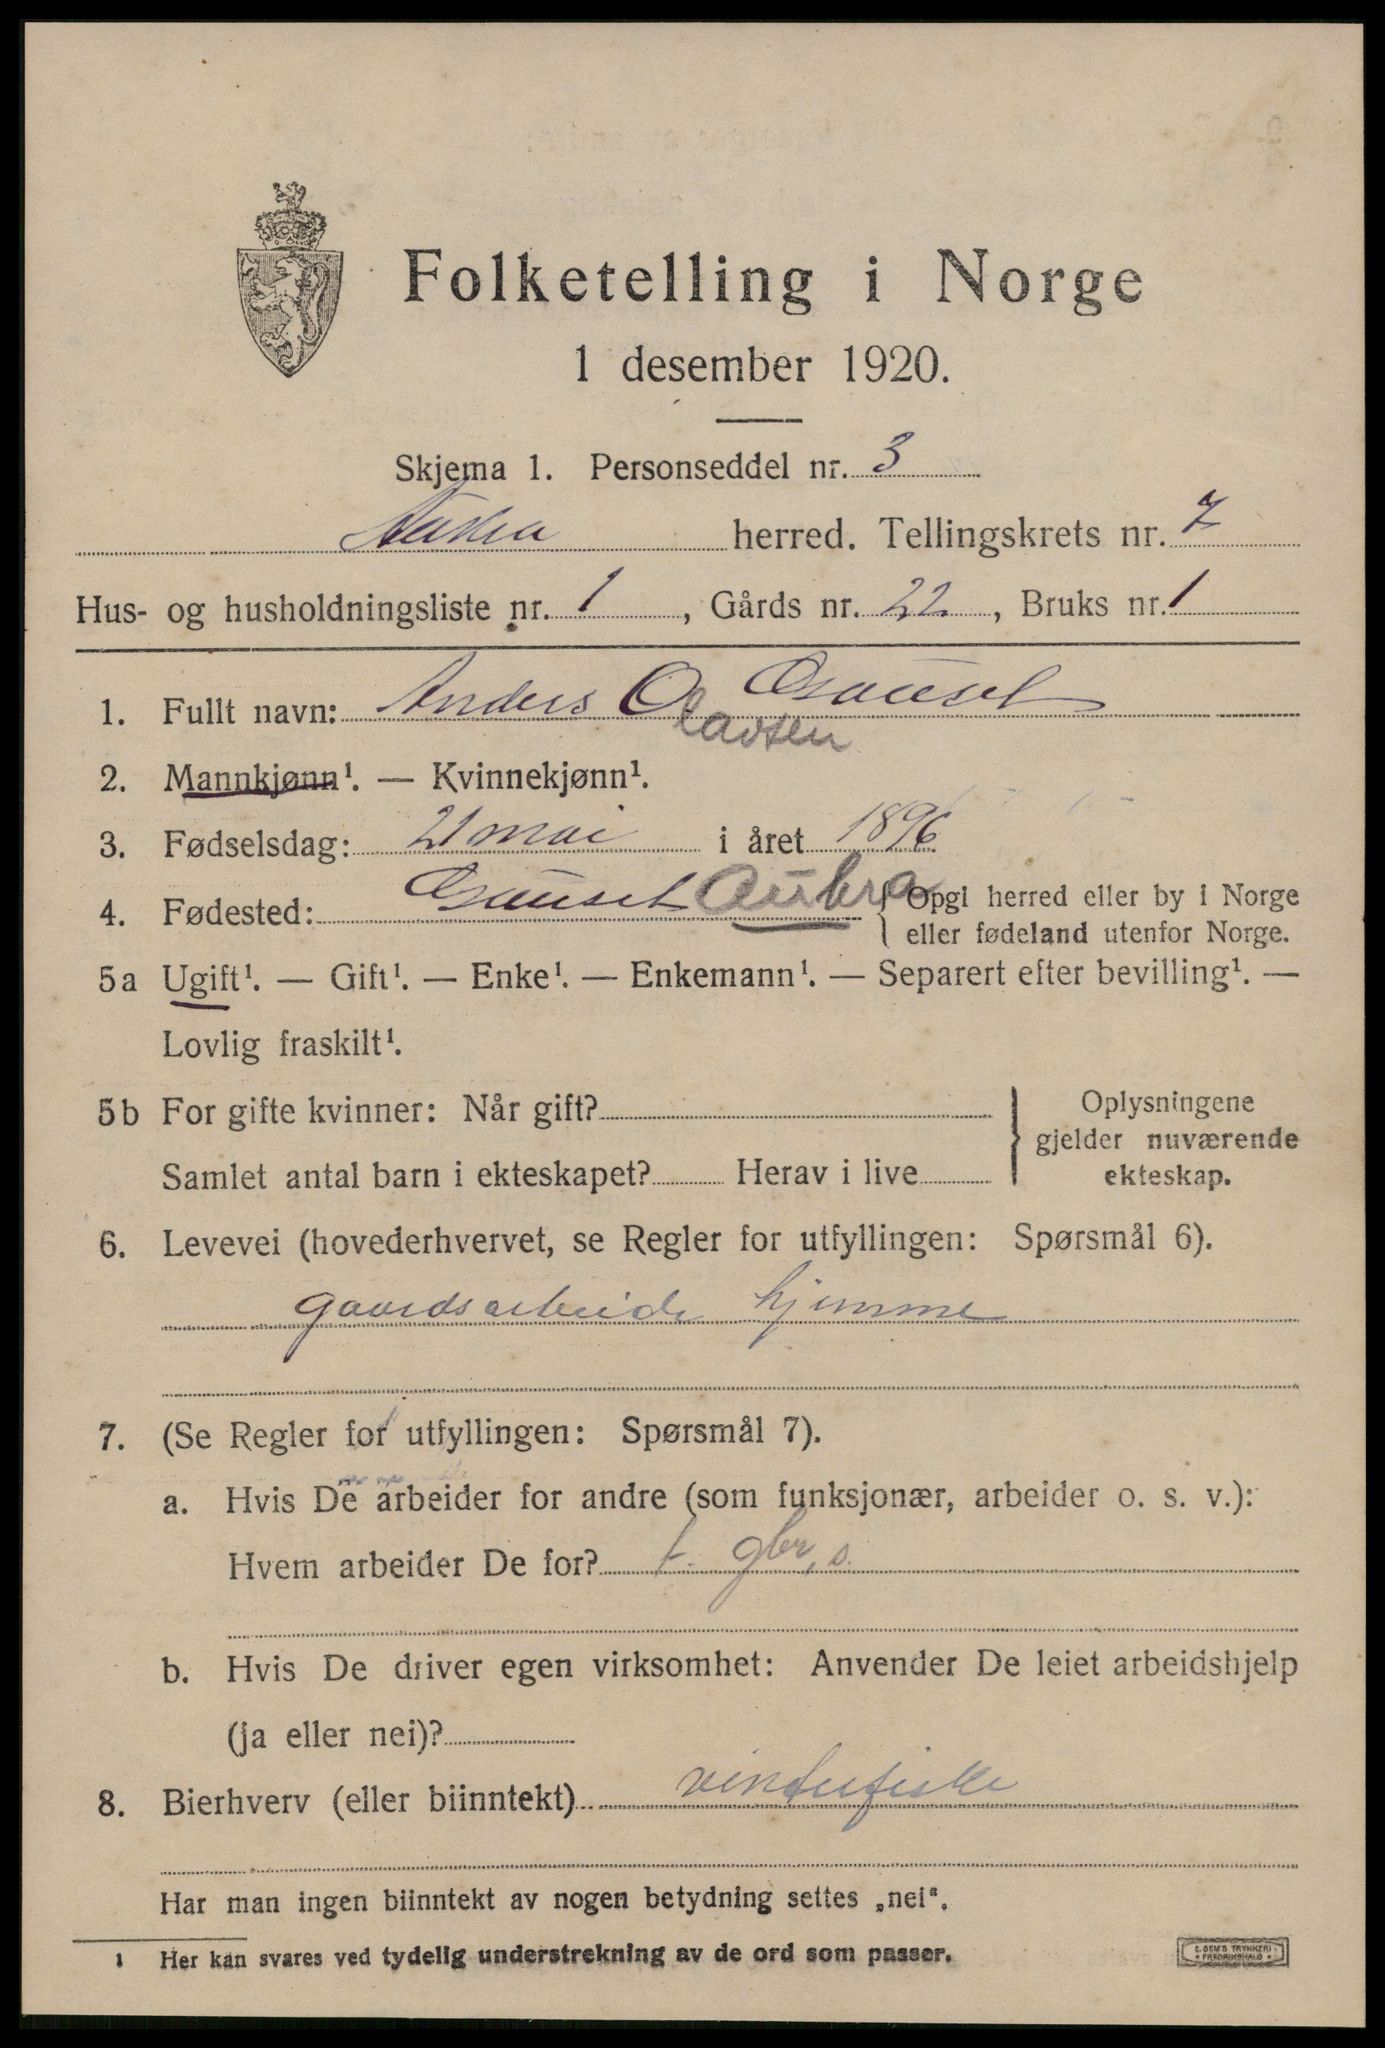 Folketelling i Norge
1 desember 1920.
Skjema 1. Personseddel nr. 3
Aukra herred. Tellingskrets nr. 7
Hus- og husholdningsliste nr. 1, Gårds nr. 22, Bruks nr. 1
1. Fullt navn: Anders O
lavsen
2. Mannkjønn¹. — Kvinnekjønn¹.
3. Fødselsdag: 21 mai i året 1896
4. Fødested: Aukra { Opgi herred eller by i Norge
eller fødeland utenfor Norge.
5a Ugift¹. — Gift¹. — Enke¹. — Enkemann¹. — Separert efter bevilling¹. —
Lovlig fraskilt¹.
5b For gifte kvinner: Når gift? } Oplysningene
gjelder nuværende
ekteskap.
Samlet antal barn i ekteskapet? Herav i live
6. Levevei (hovederhvervet, se Regler for utfyllingen: Spørsmål 6).
gaardsarbeide hjemme
7. (Se Regler for utfyllingen: Spørsmål 7).
a. Hvis De arbeider for andre (som funksjonær, arbeider o. s. v.):
Hvem arbeider De for? f. gbr, s.
b. Hvis De driver egen virksomhet: Anvender De leiet arbeidshjelp
(ja eller nei)?
8. Bierhverv (eller biinntekt) vinterfiske
Har man ingen biinntekt av nogen betydning settes „nei“.
1 Her kan svares ved tydelig understrekning av de ord som passer.
E. SEM'S TRYKKERI
FREDRIKSHALD